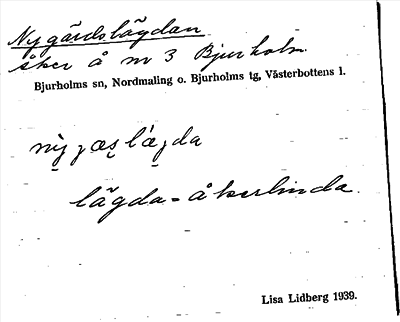 Nygårdslägdan
åker å nr 3 Bjurholm.
Bjurholms sn, Nordmaling o. Bjurholms tg, Västerbottens l.
lägda = åkerlinda.
Lisa Lidberg 1939.